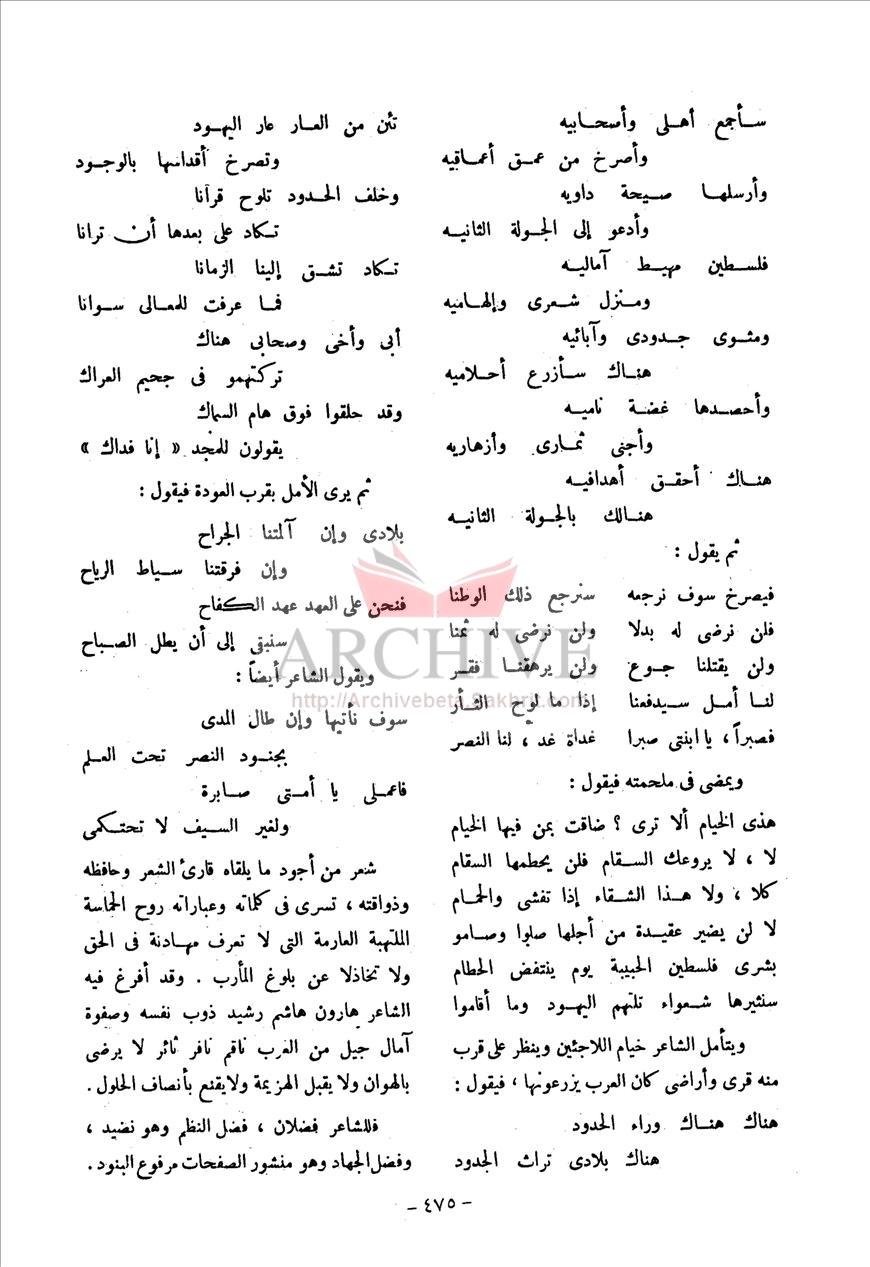 سأجمع أهلى وأصحابيه
وأصرخ من عمق أعماقيه
وأرسلها صيحة داويه
وأدعو إلى الجولة الثانيه
فلسطين مهبط آماليه
ومنزل شعرى وإلهاميه
ومثوى جدودى وآبائيه
هناك سأزرع أحلاميه
وأحصدها غضة ناميه
وأجنى ثمارى وأزهاريه
هناك أحقق أهدافيه
هنالك بالجولة الثانيه
ثم يقول :
فيصرخ سوف نرجعه سنرجع ذلك الوطنا
فلن نرضى له بدلا ولن نرضى له ثمنا
ولن يقتلنا جوع ولن يرهقنا فقر
لنا أمل سيدفعنا إذا ما لوح الثأر
فصبراً ، يا ابنتى صبرا غداة غد ، لنا النصر
ويمضى فى ملحمته فيقول :
هذى الخيام ألا ترى ؟ ضاقت بمن فيها الخيام
لا ، لا يروعك السقام فلن يحطمها السقام
كلا ، ولا هذا الشقاء إذا تفشى والحمام
لا لن يضير عقيدة من أجلها صلوا وصامو
بشرى فلسطين الحبيبة يوم ينتفض الحطام
سنثيرها شعواء تلتهم اليهود وما أقاموا
ويتأمل الشاعر خيام اللاجئين وينظر على قرب
منه قرى وأراضى كان العرب يزرعونها ، فيقول :
هناك هناك وراء الحدود
هناك بلادى تراث الجدود
تئن من العار عار اليهود
وتصرخ أقداسها بالوجود
وخلف الحدود تلوح قرانا
تكاد على بعدها أن ترانا
تكاد تشق إلينا الزمانا
فما عرفت للمعالى سوانا
أبى وأخى وصحابى هناك
تركتهمو فى جحيم العراك
وقد حلقوا فوق هام السماك
يقولون للمجد « إنا فداك »
ثم يرى الأمل بقرب العودة فيقول :
بلادى وإن آلمتنا الجراح
وإن فرقتنا سياط الرياح
فنحن على العهد عهد الكفاح
سنبقى إلى أن يطل الصباح
ويقول الشاعر أيضاً :
سوف نأتيها وإن طال المدى
بجنود النصر تحت العلم
فاعملى يا أمتى صابرة
ولغير السيف لا تحتكمى
شعر من أجود ما يلقاه قارئ الشعر وحافظه
وذواقته ، تسرى فى كلماته وعباراته روح الحماسة
الملتهبة العارمة التى لا تعرف مهادنة فى الحق
ولا تخاذلا عن بلوغ المأرب . وقد أفرغ فيه
الشاعر هارون هاشم رشيد ذوب نفسه وصفوة
آمال جيل من العرب ناقم نافر ثائر لا يرضى
بالهوان ولا يقبل الهزيمة ولايقنع بأنصاف الحلول .
فللشاعر فضلان ، فضل النظم وهو نضيد ،
وفضل الجهاد وهو منشور الصفحات مرفوع البنود .
ARCHIVE
http://Archivebeta.Sakhrit.com
- ٤٧٥ -